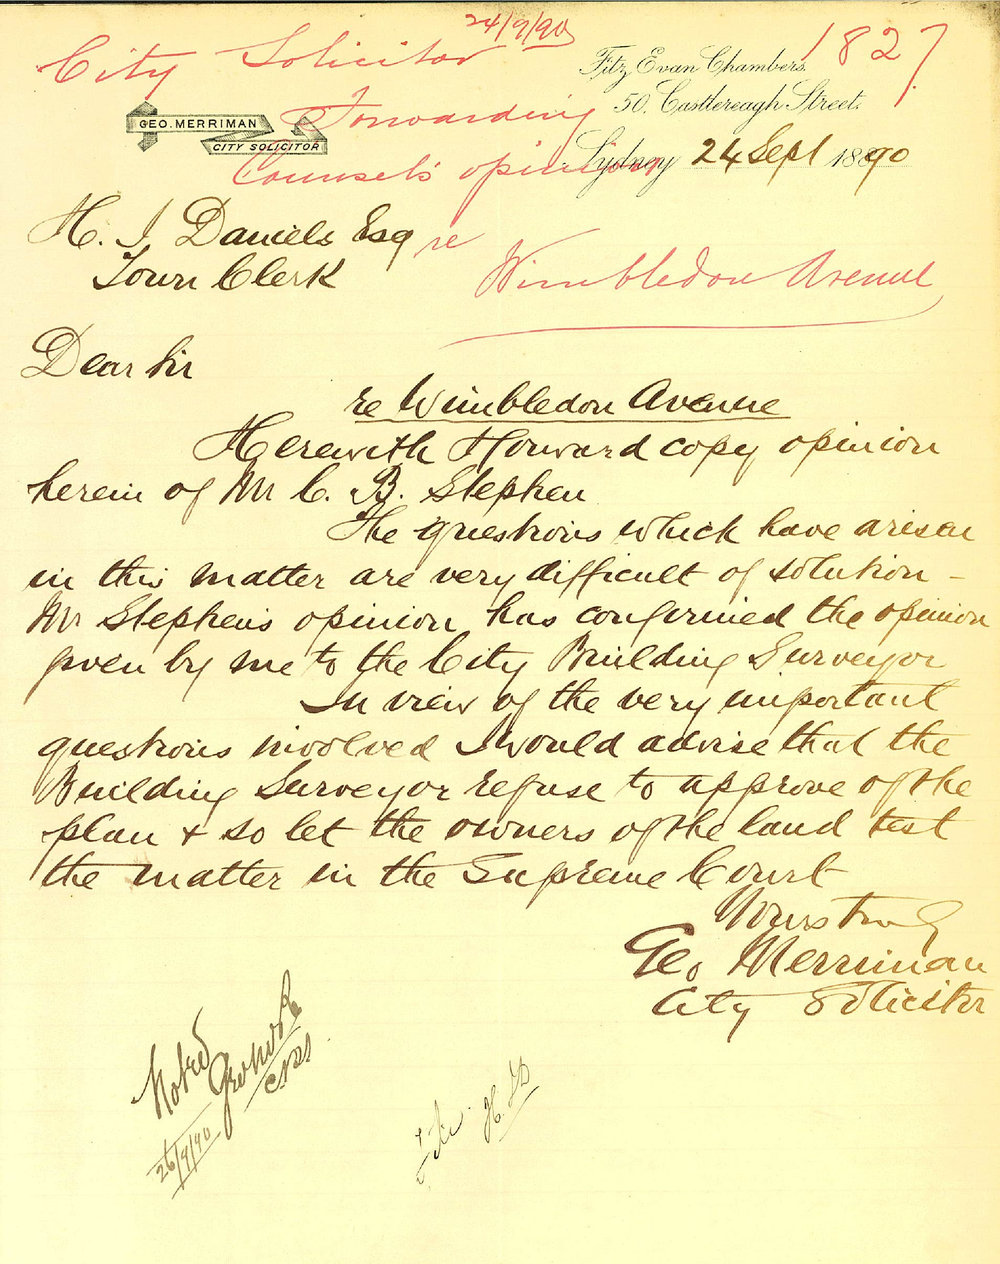 24/9/90
1827
City Solicitor
Forwarding
Counsel's opinion
re Wimbledon Avenue
Fitz Evan Chambers.
50. Castlereagh Street.
GEO. MERRIMAN
CITY SOLICITOR
Sydney 24 Sept 1890
H. J Daniels Esq
Town Clerk
Dear Sir
re Wimbledon Avenue
Herewith I forward copy opinion
herein of Mr C. B. Stephen
The questions which have arisen
in this matter are very difficult of solution -
Mr Stephen's opinion has confirmed the opinion
given by me to the City Building Surveyor
In view of the very important
questions involved I would advise that the
Building Surveyor refuse to approve of the
plan & so let the owners of the land test
the matter in the Supreme Court
Yours truly
Geo Merriman
City Solicitor
Noted
26/9/90
File H.J.D